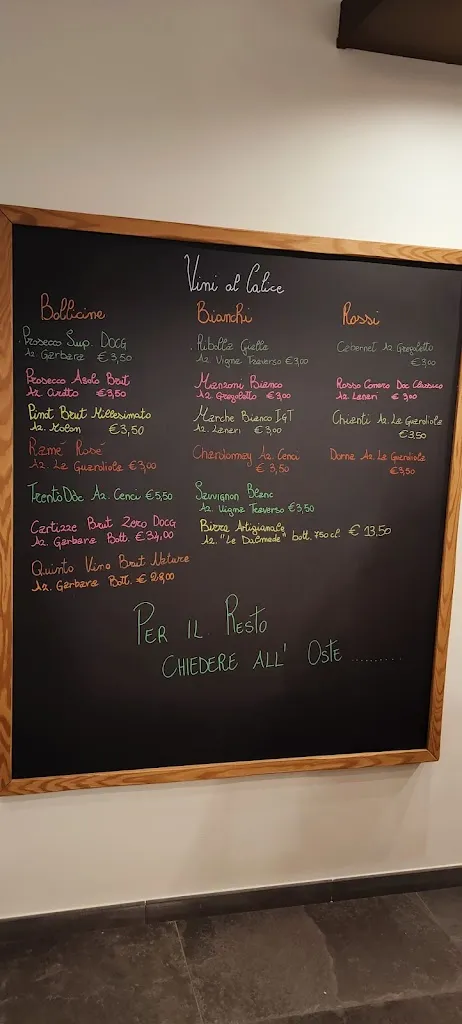 Vini al Calice
Bollicine
Prosecco Sup. DOCG
Az. Garbara €3,50
Prosecco Asolo Brut
Az. Cirotto €3,50
Pinot Brut Millesimato
Az. Molon €3,50
Ramé Rosé
Az. Le Guardiole €3,00
TrentoDoc Az. Cenci €5,50
Cartizze Brut Zero DOCG
Az. Garbara Bott. €34,00
Quinto Vino Brut Nature
Az. Garbara Bott. €28,00
Bianchi
Ribolla Gialla
Az. Vigna Traverso €3,00
Manzoni Bianco
Az. Gregoletto €3,00
Marche Bianco IGT
Az. Laneri €3,00
Chardonnay Az. Cenci
€3,50
Sauvignon Blanc
Az. Vigna Traverso €3,50
Birra Artigianale
Az. "Le Dalmede" bott. 750 cl. €13,50
Rossi
Cabernet Az Gregoletto
€3,00
Rosso Conero Doc Classico
Az. Laneri €3,00
Chianti Az. Le Guardiole
€3,50
Az. Le Guardiole
€3,50
PER IL RESTO
CHIEDERE ALL' OSTE .........